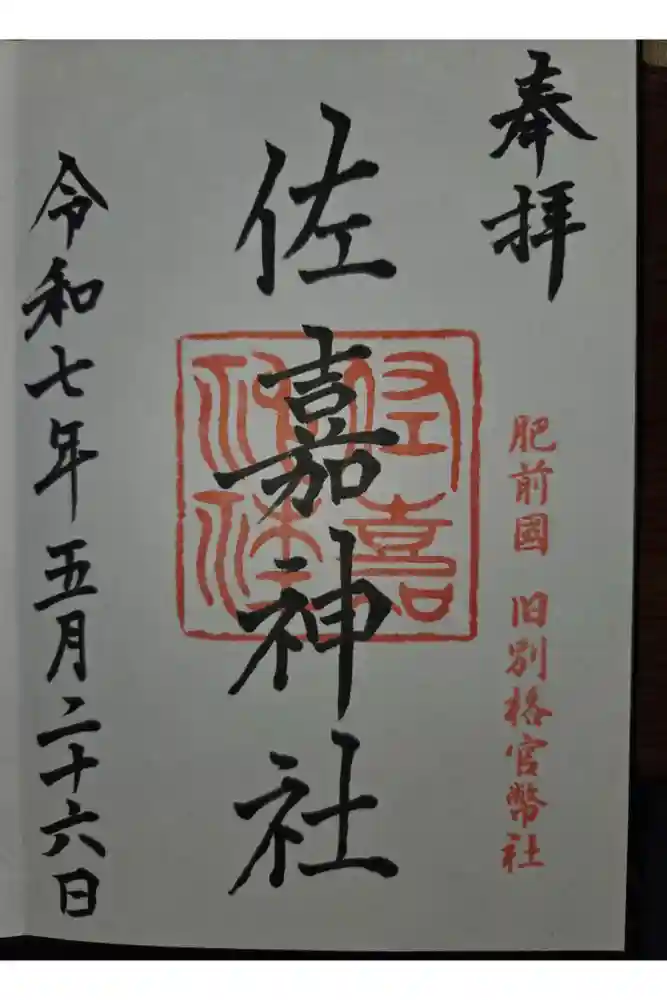 奉拝
肥前國 旧別格官幣社
佐嘉神社
佐嘉神社
令和七年五月二十六日